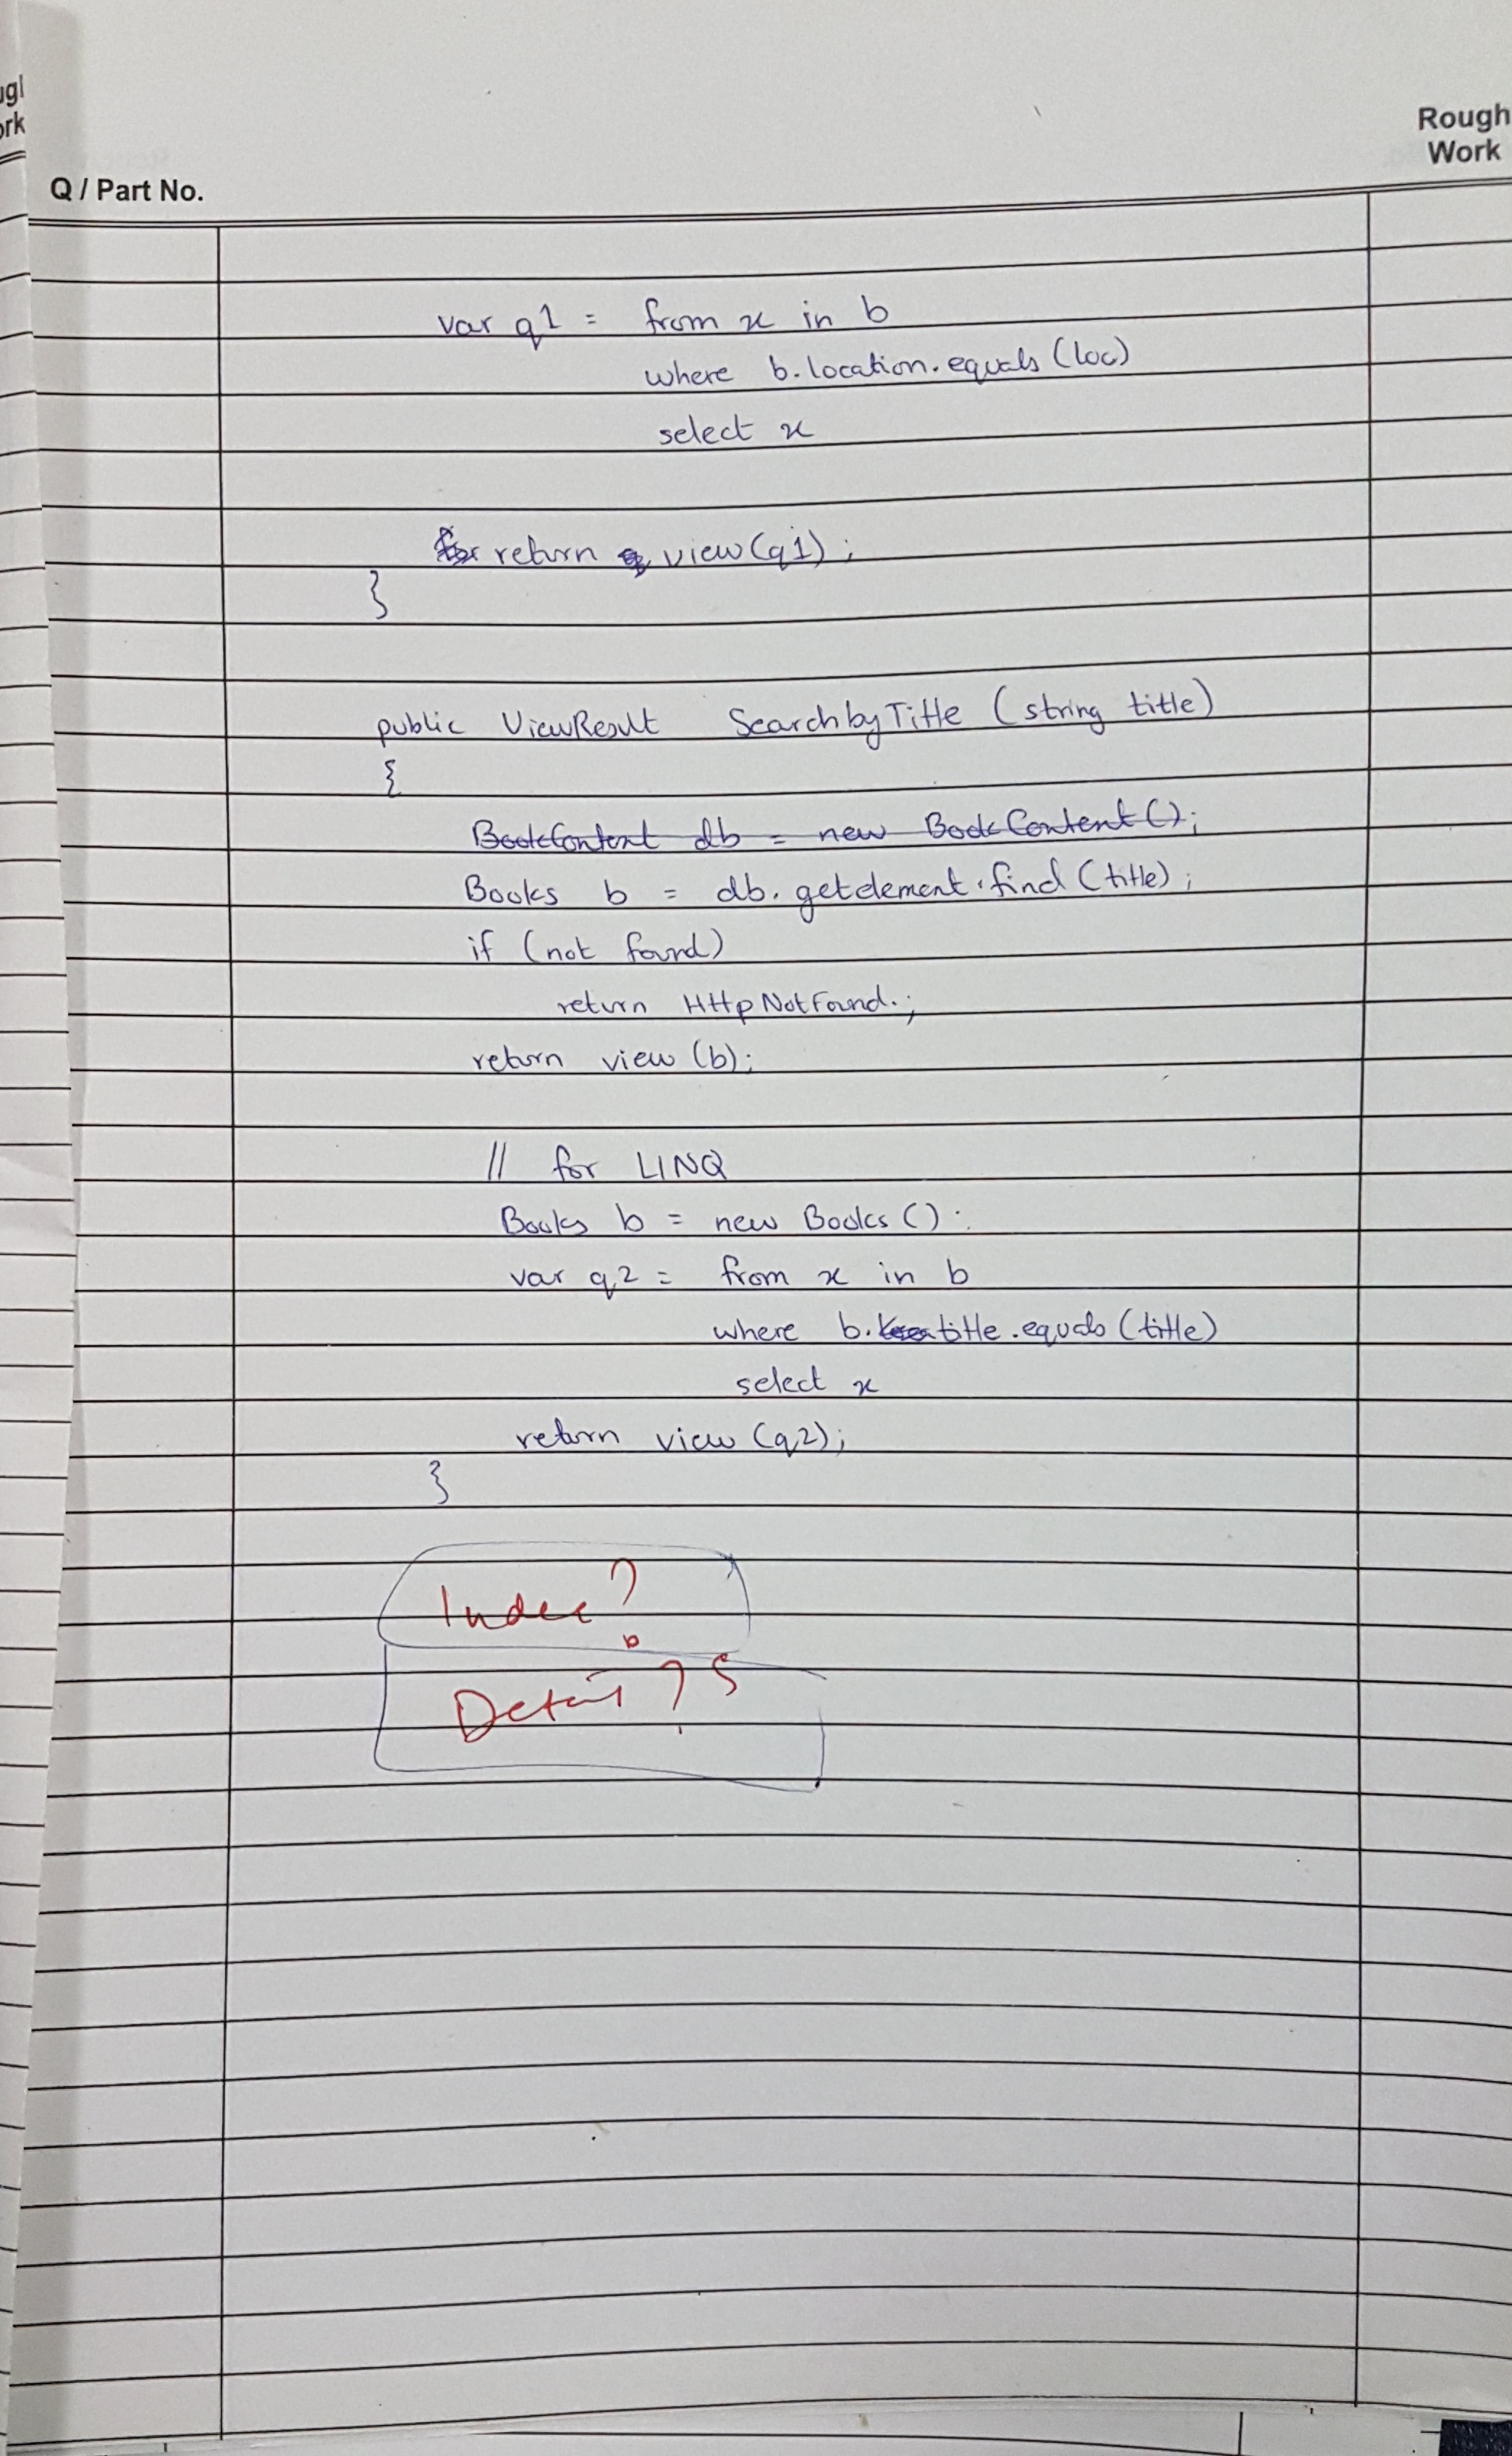 ugl
ork
Rough
Work
Q / Part No.
var q1 = from x in b
where b.location.equals (loc)
select x
return view (q1);
}
public ViewResult SearchbyTitle (string title)
{
BookContent db = new BookContent ();
Books b = db. getelement.find (title);
if (not found)
return HttpNotFound.;
return view (b);
// for LINQ
Books b = new Books ();
var q2 = from x in b
where b. title.equals (title)
select x
return view (q2);
}
Index?
Detail ?